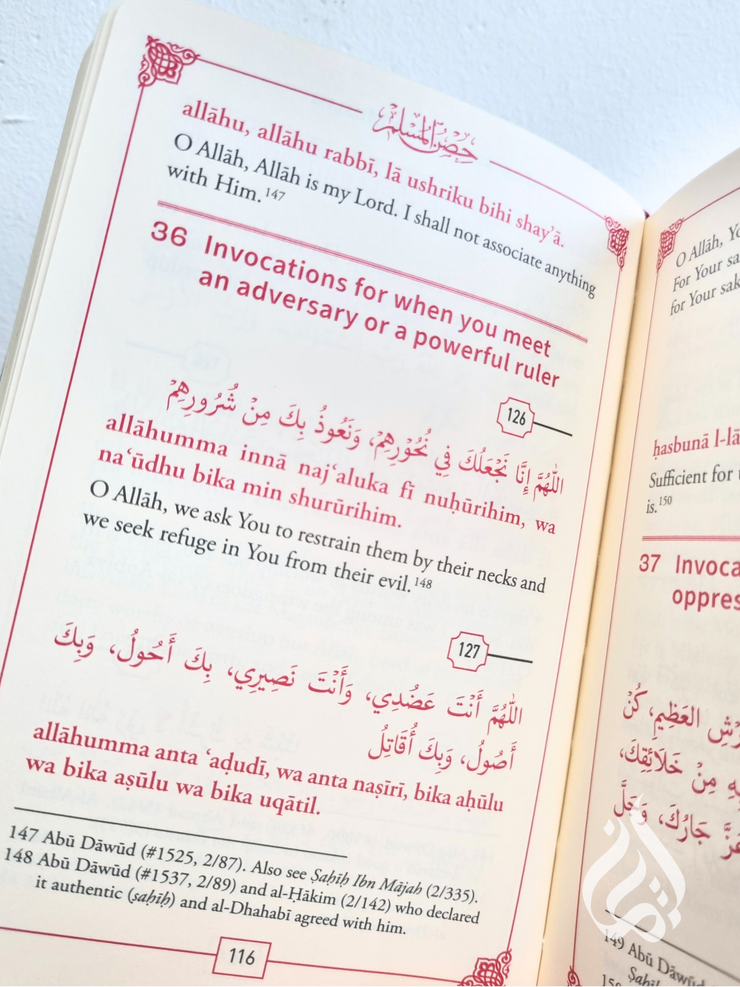 حِصْنُ المُسْلِم
allāhu, allāhu rabbī, lā ushriku bihi shay’ā.
O Allāh, Allāh is my Lord. I shall not associate anything
with Him.147
36 Invocations for when you meet
an adversary or a powerful ruler
126
اللّٰهُمَّ إِنَّا نَجْعَلُكَ فِي نُحُوْرِهِمْ، وَنَعُوذُ بِكَ مِنْ شُرُورِهِمْ
allāhumma innā naj‘aluka fī nuḥūrihim, wa
na‘ūdhu bika min shurūrihim.
O Allāh, we ask You to restrain them by their necks and
we seek refuge in You from their evil.148
127
اللّٰهُمَّ أَنْتَ عَضُدِي، وَأَنْتَ نَصِيرِي، بِكَ أَحُولُ، وَبِكَ
أَصُولُ، وَبِكَ أُقَاتِلُ
allāhumma anta ‘aḍudī, wa anta naṣīrī, bika aḥūlu
wa bika aṣūlu wa bika uqātil.
147 Abū Dāwūd (#1525, 2/87). Also see Ṣaḥīḥ Ibn Mājah (2/335).
148 Abū Dāwūd (#1537, 2/89) and al-Ḥākim (2/142) who declared
it authentic (ṣaḥīḥ) and al-Dhahabī agreed with him.
116
O Allāh,
For Your
for Your
ḥasbunā
Sufficient for
is.150
37
العَظِيمِ، كُنْ
مِنْ خَلَائِقِكَ،
جَارُكَ، وَجَلَّ
149 Abū Dāwūd